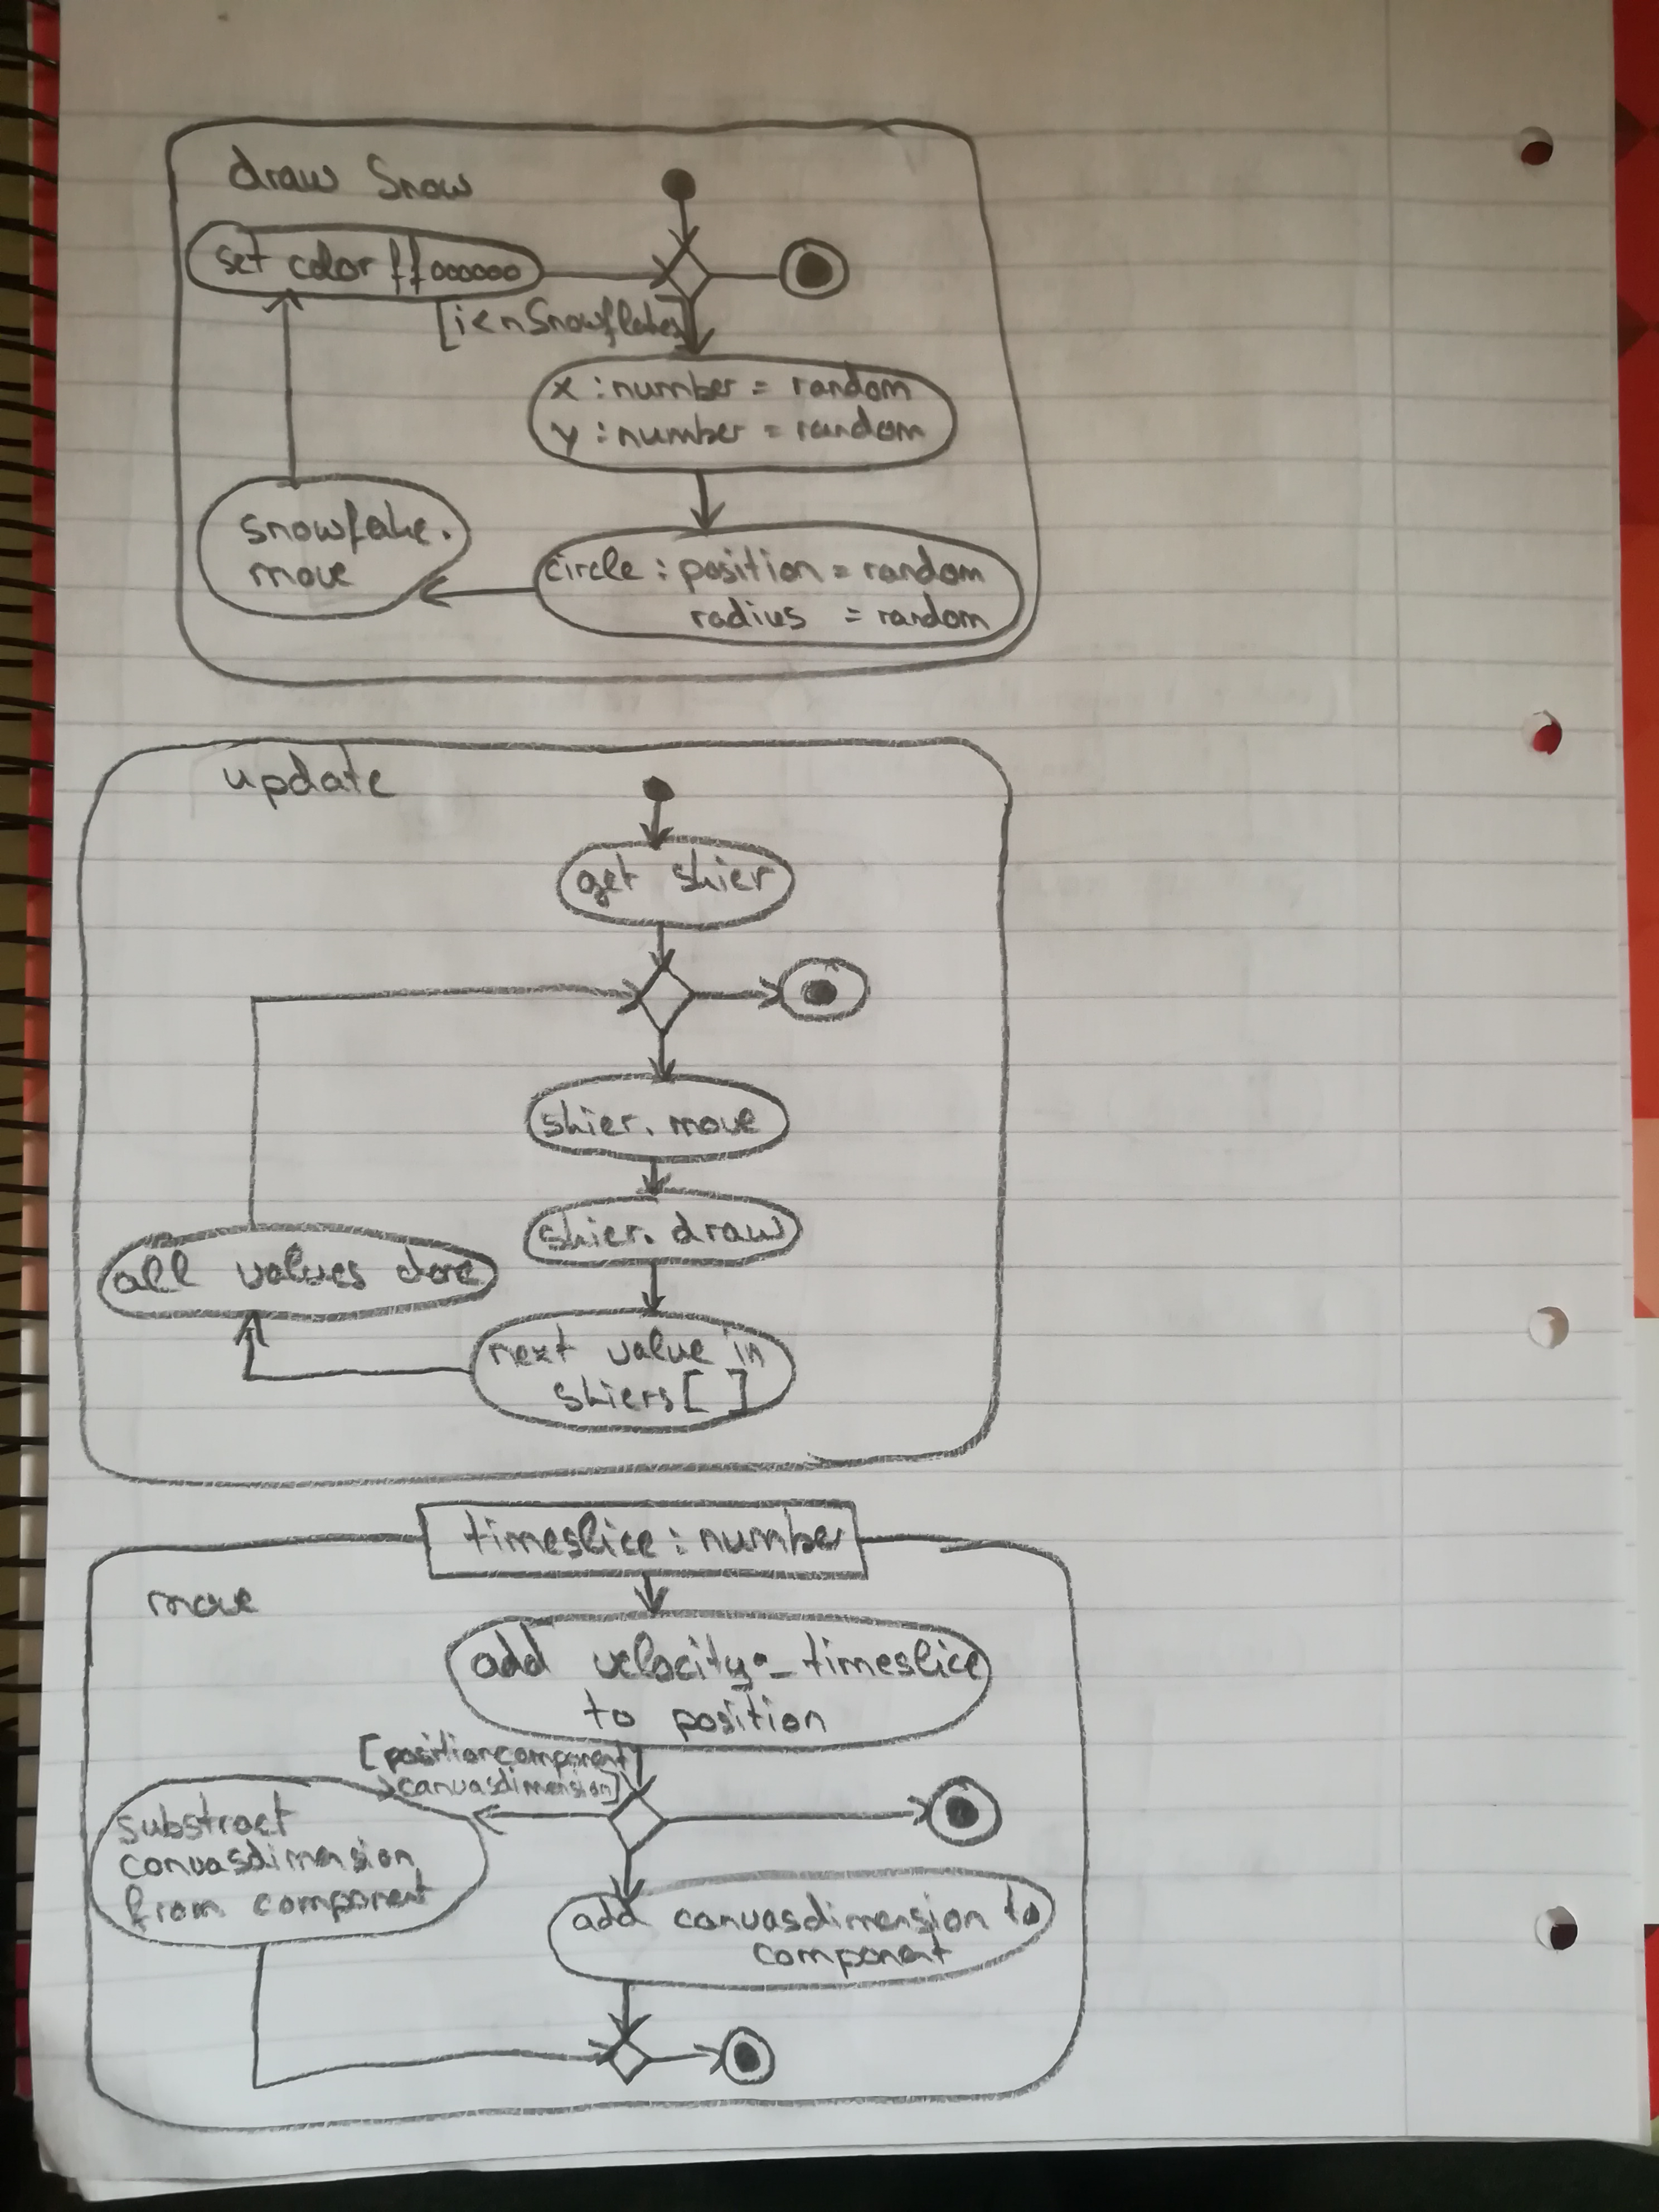 draw Snow
set color ffoooooo
[i<nSnowflakes]
x : number = random
y : number = random
circle : position = random
radius = random
snowflake.
move
update
get skier
skier. move
skier. draw
next value in
skiers[ ]
all values done
timeslice : number
move
add velocity*_timeslice
to position
[positioncomponent
>canvasdimension]
substract
canvasdimension
from component
add canvasdimension to
component